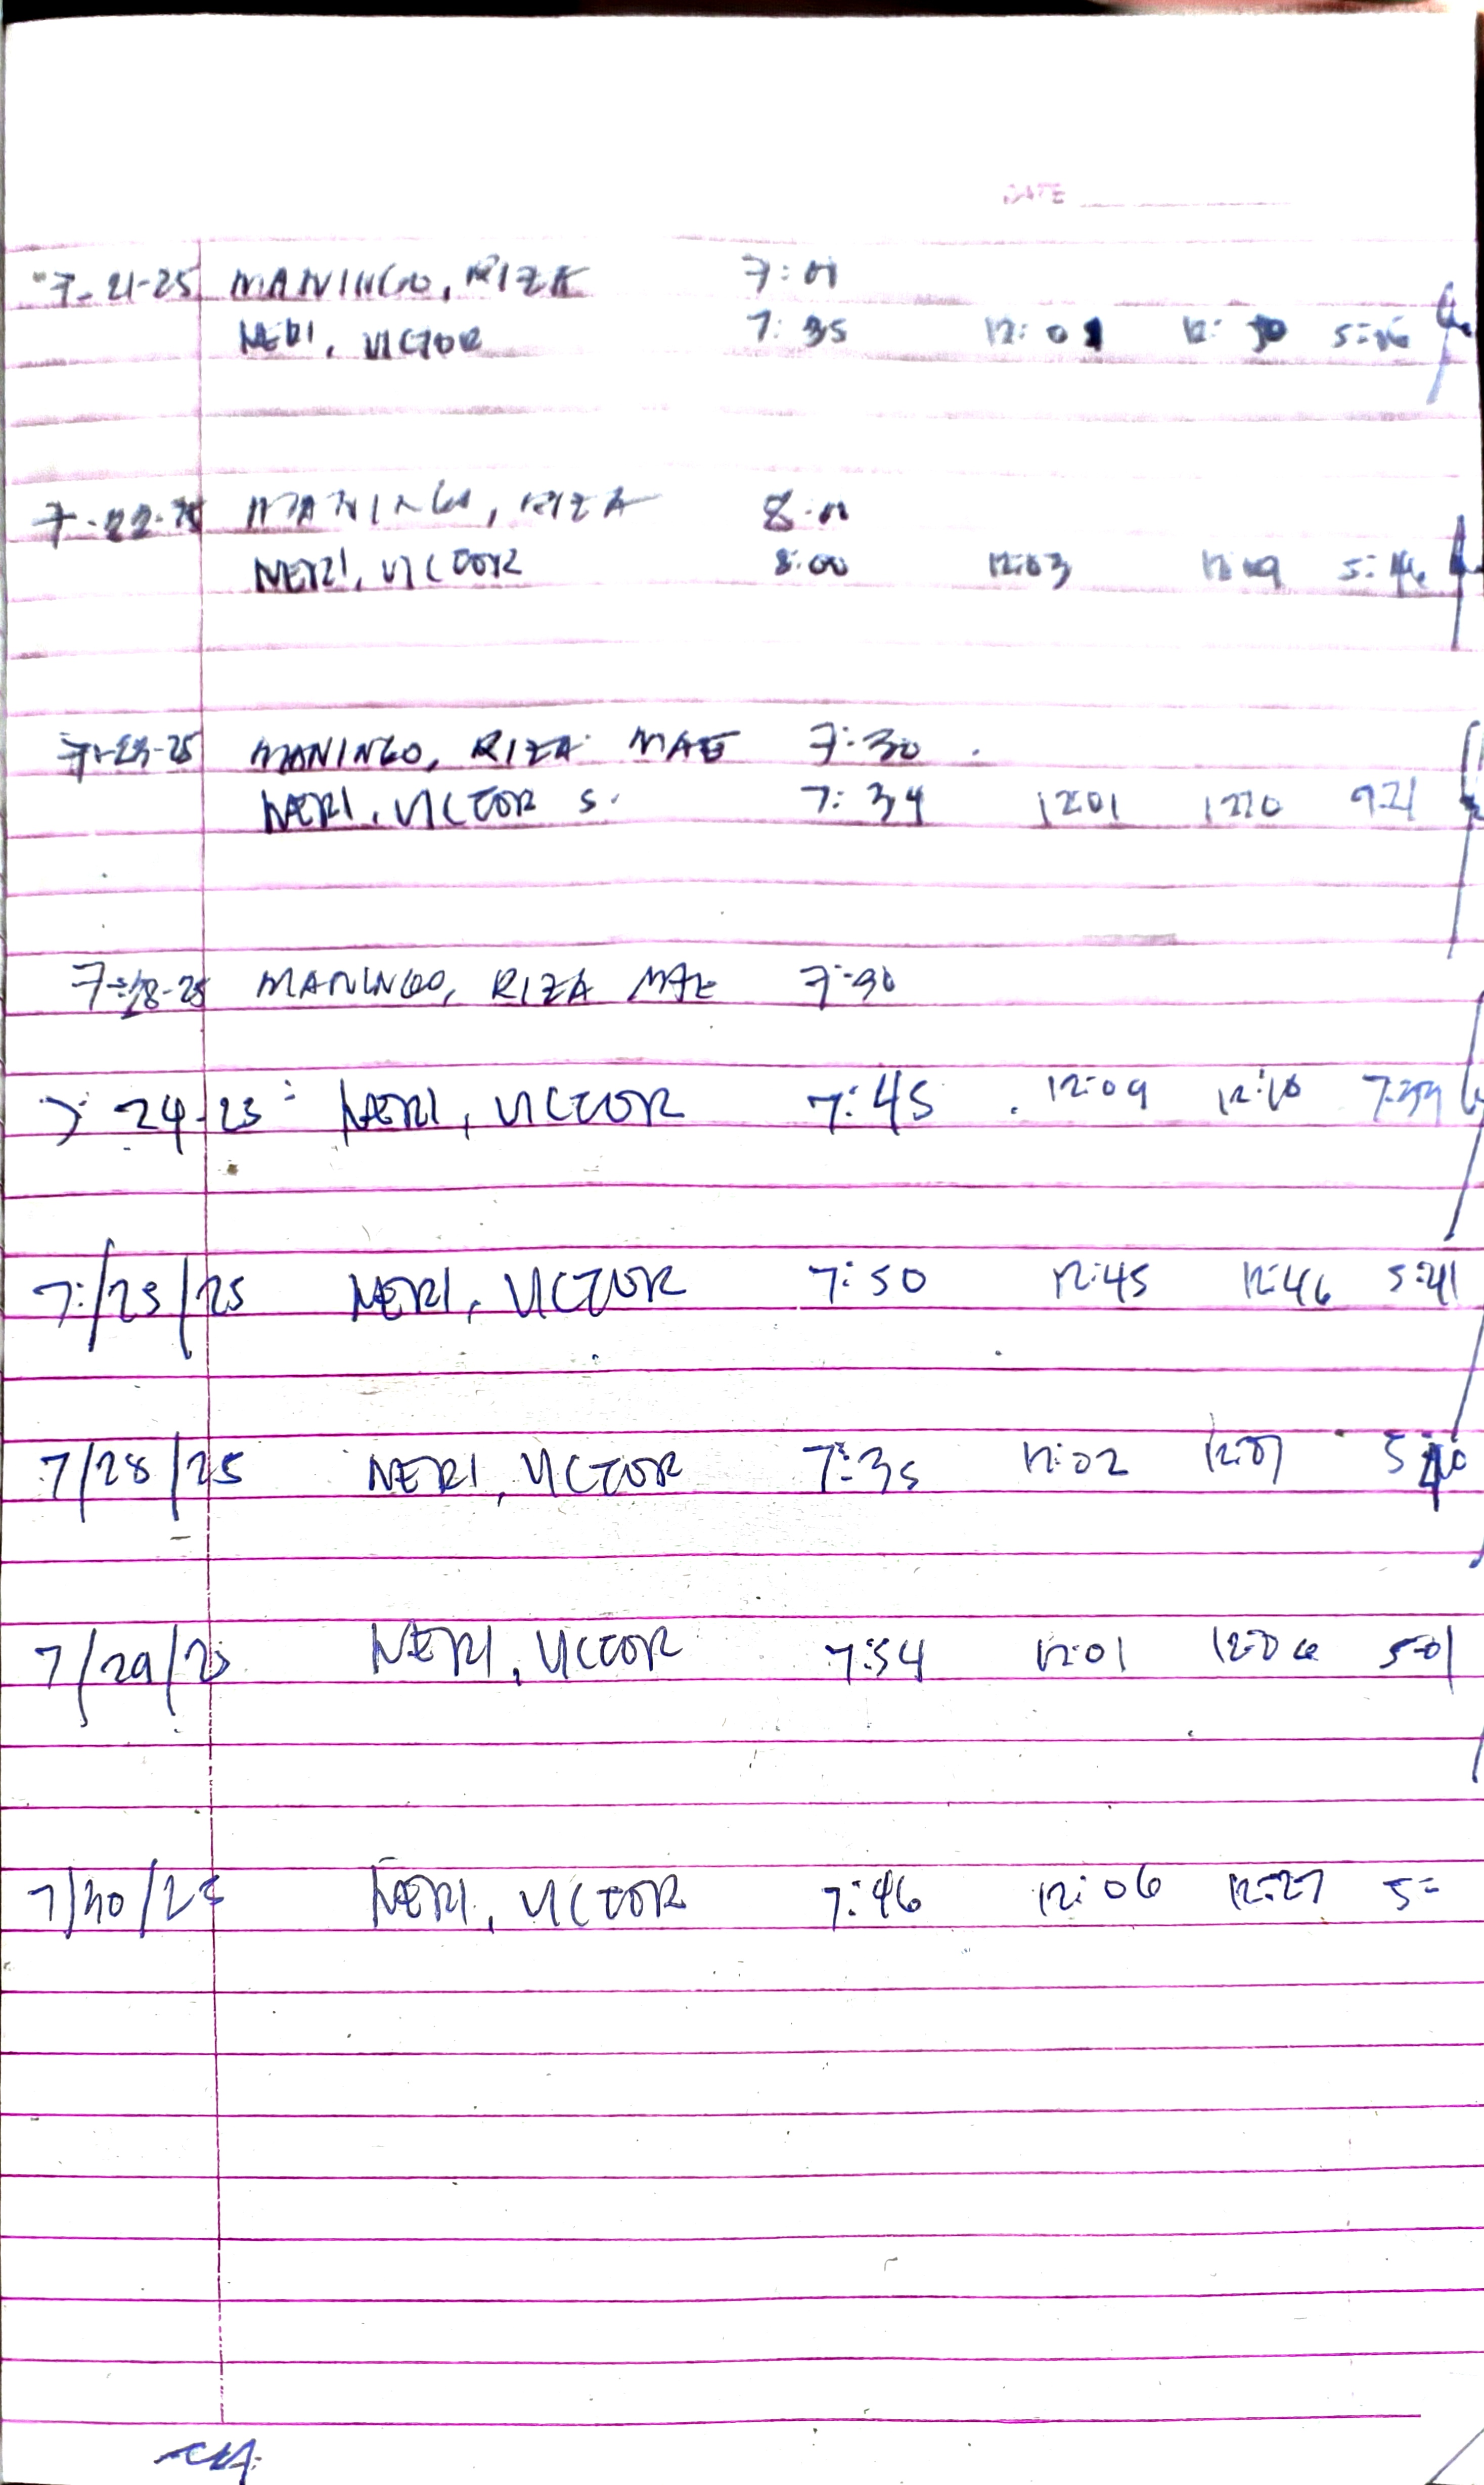 DATE
7-21-25 MANINGO, RIZA 7:01
NERI, VICTOR 7:35 12:01 12:30 5:16
7-22-25 MANINGO, RIZA
NERI, VICTOR 8:00 12:03 12:09 5:46
7-23-25 MANINGO, RIZA MAE 7:30
NERI, VICTOR S. 7:34 1201 1210 921
MANINGO, RIZA MAE 7:30
7: 24-25 NERI, VICTOR 7:45 12:09 12:10 7:39
7/25/25 NERI, VICTOR 7:50 12:45 12:46 5:41
7/28/25 NERI, VICTOR 7:35 12:02 12:07
7/29/25 NERI, VICTOR 7:54 12:01 5:01
7/30/25 NERI, VICTOR 7:46 12:06 12:27 5: